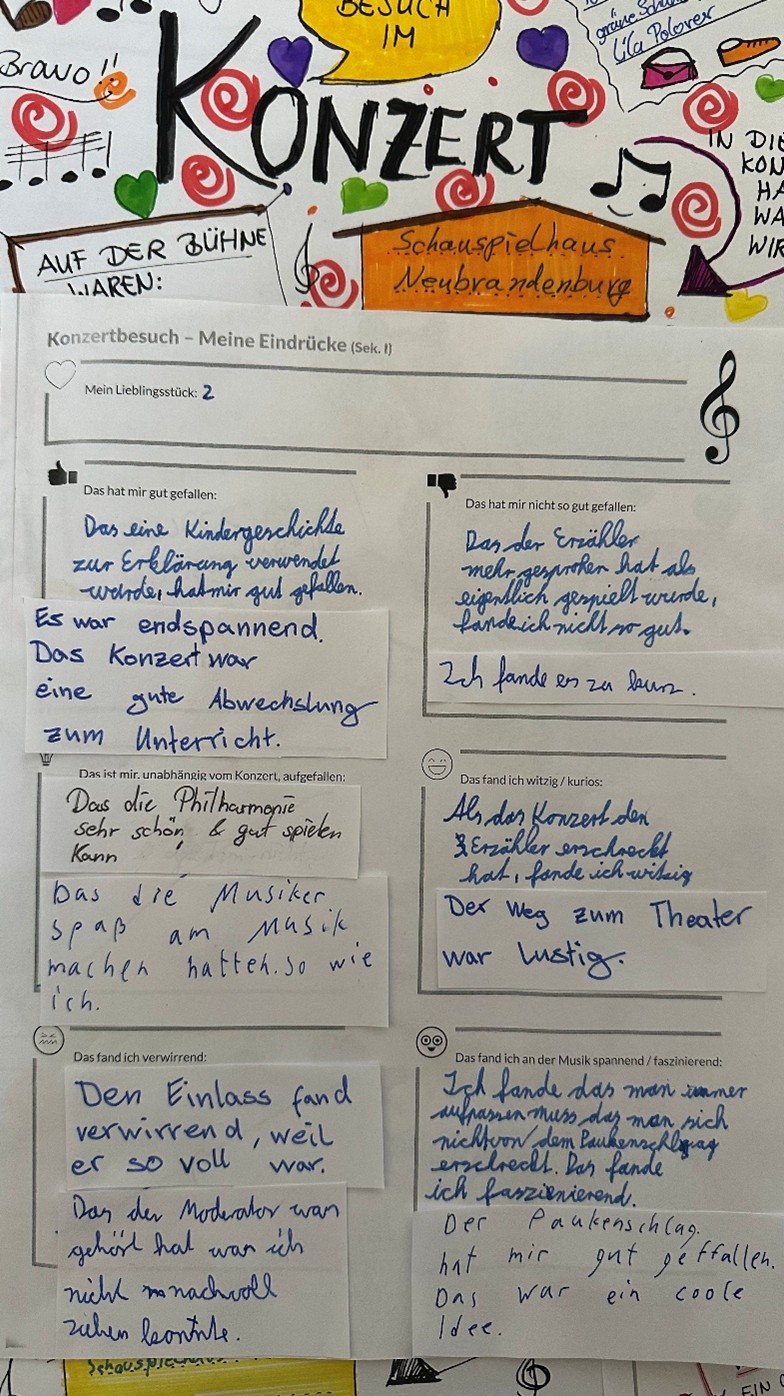 BESUCH
IM
KONZERT
Bravo!!
grüne Schuhe
Lila Polover
IN DIE
KON
HA
WA
WIR
AUF DER BÜHNE
WAREN:
Schauspielhaus
Neubrandenburg
Konzertbesuch – Meine Eindrücke (Sek. I)
Mein Lieblingsstück: 2
Das hat mir gut gefallen:
Das eine Kindergeschichte
zur Erklärung verwendet
wurde, hat mir gut gefallen.
Es war endspannend.
Das Konzert war
eine gute Abwechslung
zum Unterricht.
Das hat mir nicht so gut gefallen:
Das der Erzähler
mehr gesprohen hat als
eigentlich gespielt wurde,
fande ich nicht so gut.
Ich fande es zu kurz.
Das ist mir, unabhängig vom Konzert, aufgefallen:
Das die Philharmonie
sehr schön & gut spielen
kann
Das die Musiker
spaß am Musik
machen hatten. so wie
ich.
Das fand ich witzig / kurios:
Als das Konzert den
Erzähler erschreckt
hat, fande ich witzig
Der Weg zum Theater
war lustig.
Das fand ich verwirrend:
Den Einlass fand
verwirrend, weil
er so voll war.
Das der Moderator was
gehört hat was ich
nicht nachvoll
ziehen konnte.
Das fand ich an der Musik spannend / faszinierend:
Ich fande das man immer
aufpassen muss das man sich
nicht von dem Paukenschlag
erschreckt. Das fande
ich faszienierend.
Der Paukenschlag.
hat mir gut geffallen.
Das war ein coole
Idee.